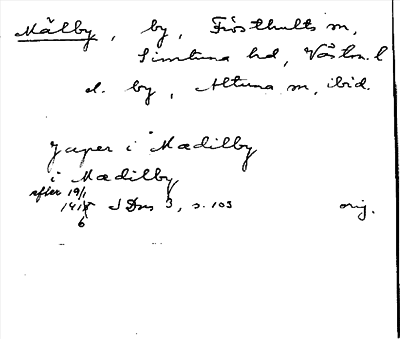 Mälby, by, Frösthults sn,
Simtuna hd, Västm. l
el. by, Altuna sn, ibid.
Japer i Mædilby
i Mædilby
efter 19/1
1415 SD ns 3, s. 103 orig.
6